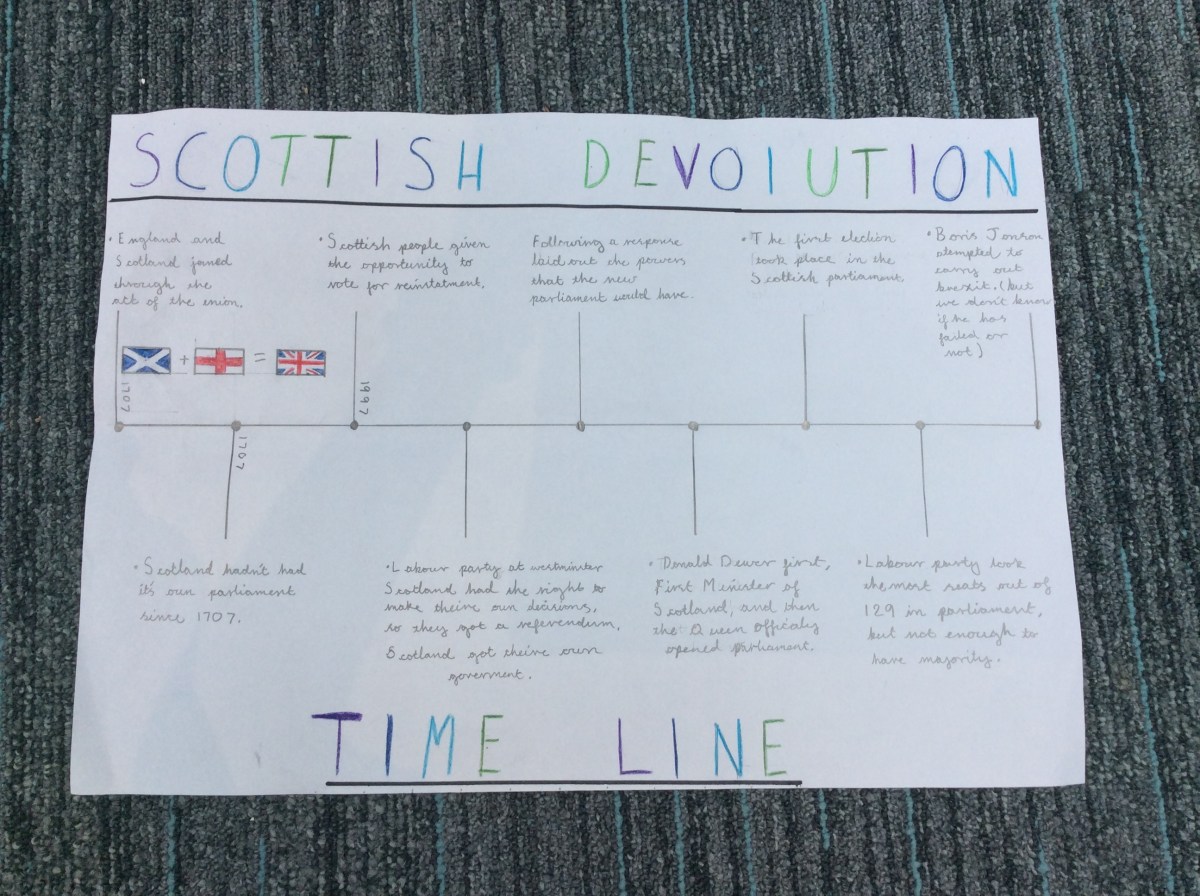 SCOTTISH DEVOLUTION
• England and
Scotland joined
through the
act of the union.
1707
• Scottish people given
the opportunity to
vote for reinstatment.
1997
Following a response
laid out the powers
that the new
parliament would have.
• The first election
took place in the
Scottish parliament.
• Boris Jonson
atempted to
carry out
brexit. (but
we don't know
if he has
failed or
not)
+ =
1707
• Scotland hadn't had
it's own parliament
since 1707.
• Labour party at westminster
Scotland had the right to
make theire own decisions,
so they got a referendum.
Scotland got theire own
goverment.
• Donald Dewer first,
First Minister of
Scotland, and then
the Queen Officaly
opened parliament.
• Labour party took
the most seats out of
129 in parliament,
but not enough to
have majority.
TIME LINE